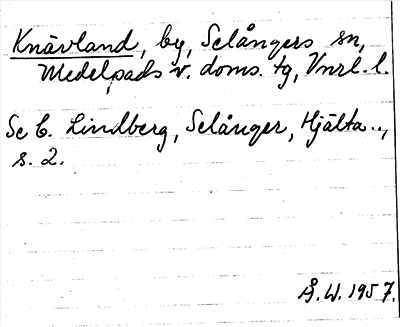 Knävland, by, Selångers sn,
Medelpads v. doms. tg, Vnrl. l.
Se C. Lindberg, Selånger, Hjälta..,
s. 2.
Å.W. 1957.